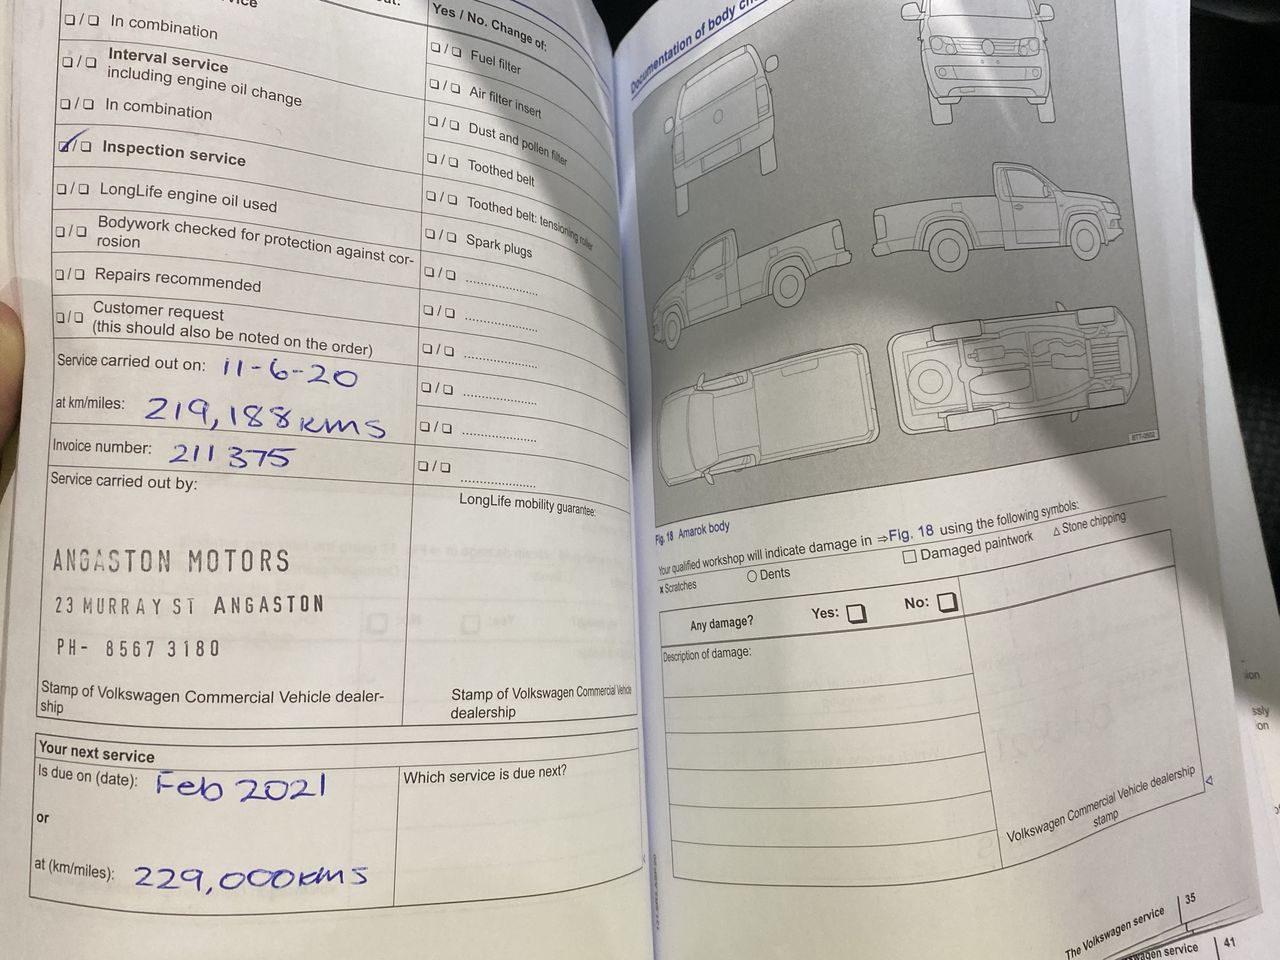 Yes / No. Change of:
❏/❏ In combination
❏/❏ Interval service
including engine oil change
❏/❏ In combination
❏/❏ Inspection service
❏/❏ LongLife engine oil used
❏/❏ Bodywork checked for protection against cor-
rosion
❏/❏ Repairs recommended
❏/❏ Customer request
(this should also be noted on the order)
Service carried out on: 11-6-20
at km/miles: 219,188 kms
Invoice number: 211375
Service carried out by:
ANGASTON MOTORS
23 MURRAY ST ANGASTON
PH- 8567 3180
Stamp of Volkswagen Commercial Vehicle dealer-
ship
❏/❏ Fuel filter
❏/❏ Air filter insert
❏/❏ Dust and pollen filter
❏/❏ Toothed belt
❏/❏ Toothed belt: tensioning roller
❏/❏ Spark plugs
❏/❏ ....................
❏/❏ ....................
❏/❏ ....................
❏/❏ ....................
❏/❏ ....................
❏/❏ ....................
LongLife mobility guarantee:
Stamp of Volkswagen Commercial Vehicle
dealership
Your next service
Is due on (date): Feb 2021
or
at (km/miles): 229,000 kms
Which service is due next?
Documentation of body
Fig. 18 Amarok body
Your qualified workshop will indicate damage in ⇒Fig. 18 using the following symbols:
x Scratches ○ Dents □ Damaged paintwork △ Stone chipping
Any damage? Yes: ❏ No: ❏
Description of damage:
Volkswagen Commercial Vehicle dealership
stamp
The Volkswagen service | 35
service | 41